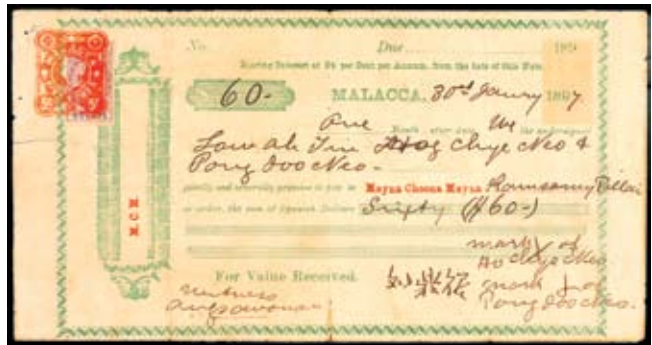 No. Due 189
Bearing Interest at % per Cent per Annum, from the date of this Note.
60.- MALACCA, 30th Janry 1897
One Month after date, We the undersigned
Low ah Tin Ho Chye Neo &
Pong Soo Neo -
jointly and severally promise to pay to Meyna Choona Meyna Ramsamy Pillai
or order, the sum of Spanish Dollars Sixty ($60-)
M C M
mark of
Ho Chye Neo
For Value Received.
mark of
Pong Soo Neo.
witness